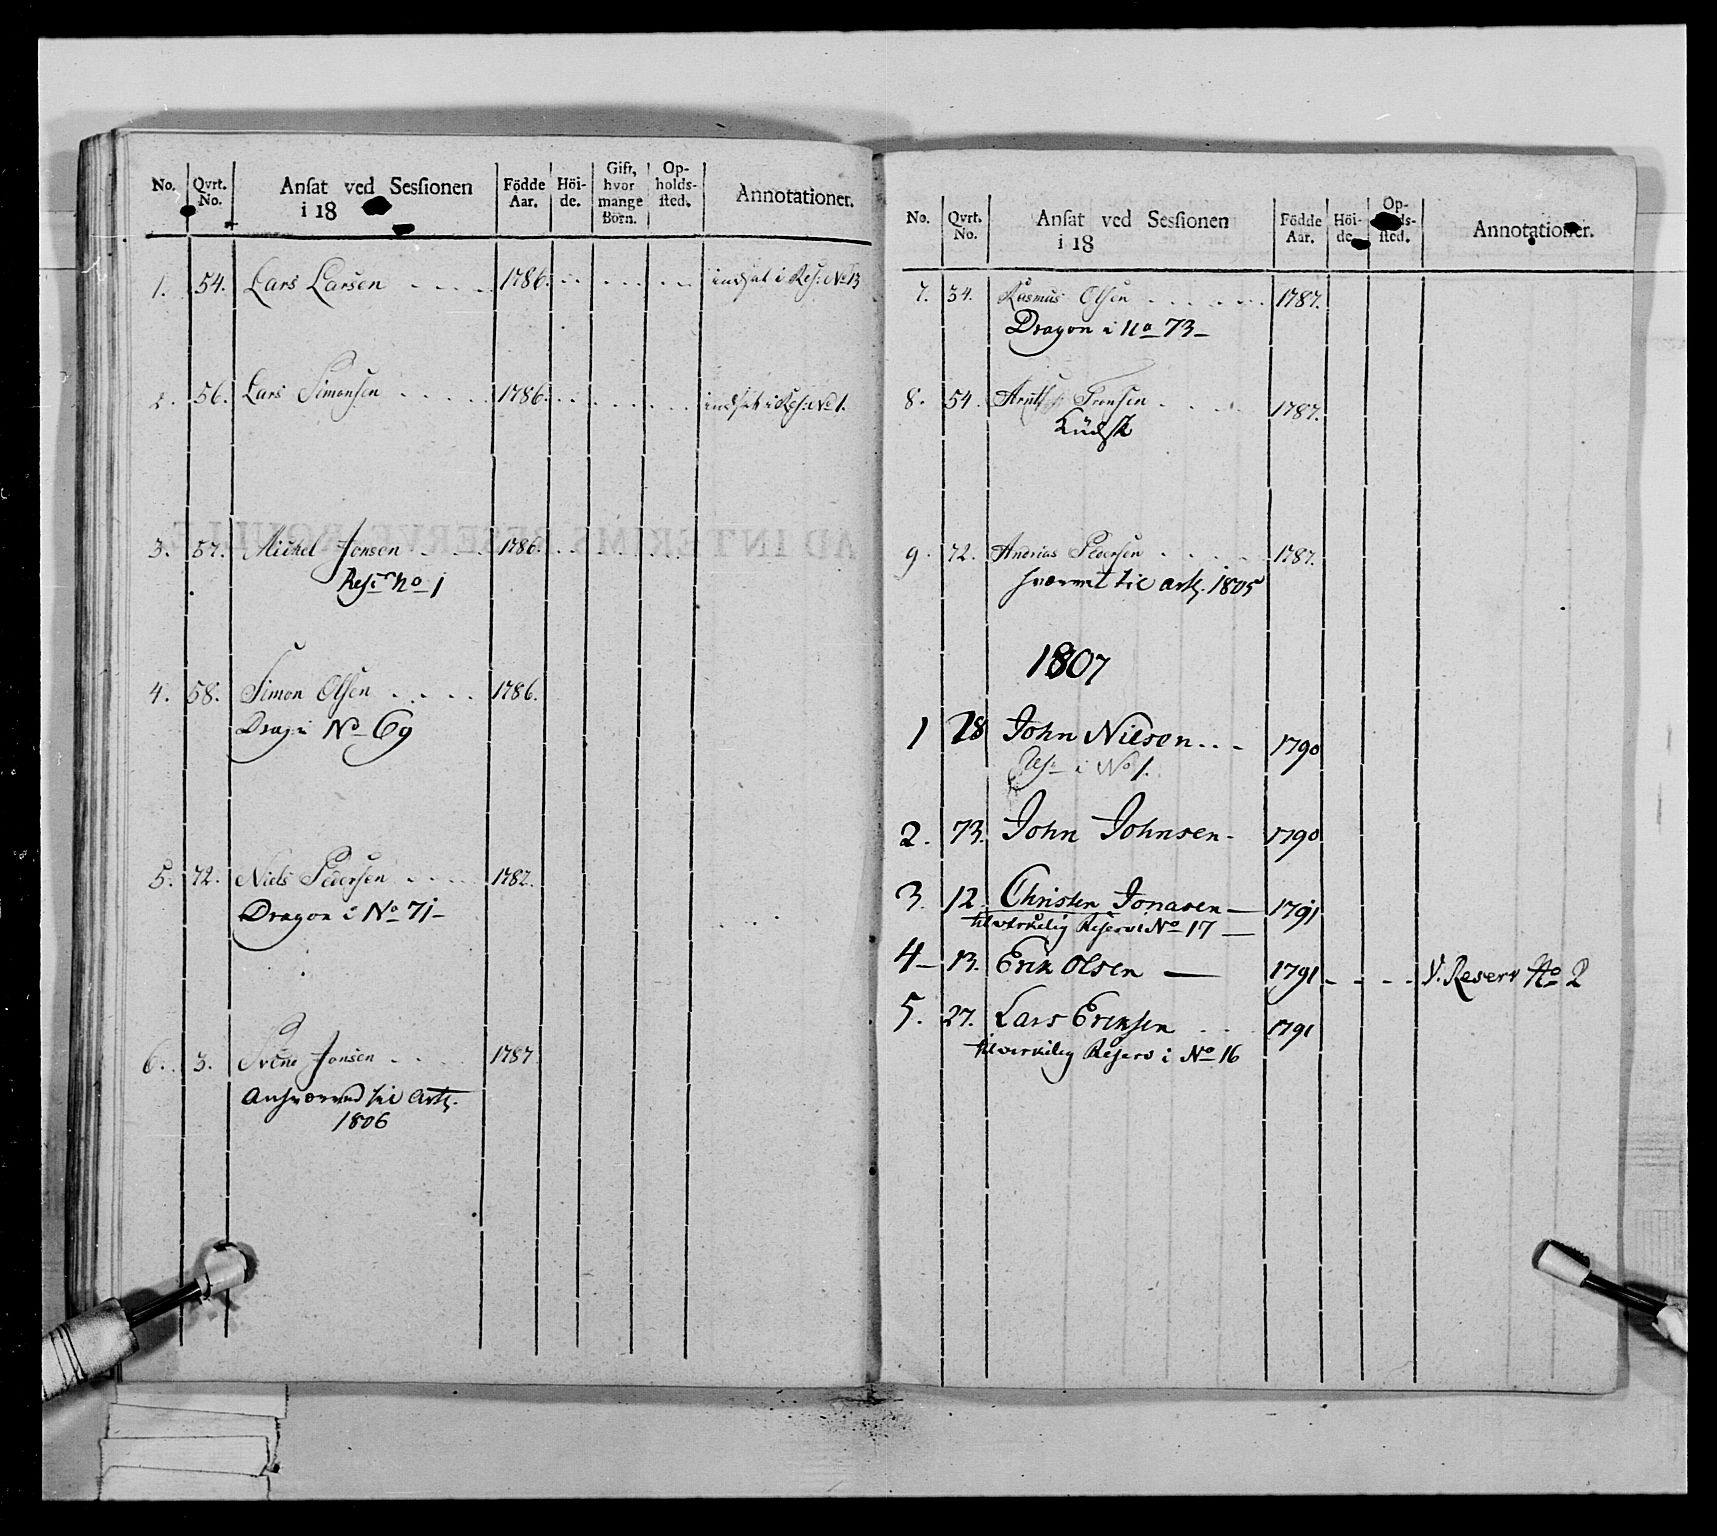 No. Qvrt. No. Anſat ved Sesſionen i 18 Födde Aar. Höide. Gift, hvor mange Börn. Opholdsſted. Annotationer.
1. 54. Lars Larsen 1786. indsat i Res: No 13
2. 56. Lars Simonsen 1786. indsat i Res: No 1.
3. 57. Michel Jonsen 1786.
Res: No 1
4. 58. Simon Olsen 1786.
Drag: No 69
5. 72. Niels Pedersen 1782.
Dragon i No 71
6. 3. Svene Jonsen 1787
til Artl.
1806
No. Qvrt. No. Anſat ved Sesſionen i 18 Födde Aar. Höide. Opholdsſted. Annotationer.
7. 34. Rasmus Olsen 1787.
Dragon i No 73
8. 54. 1787.
Kudsk
9. 72. Andrias Pedersen 1787.
til Artl. 1805
1807
1 28 John Nilsen 1790
Res: i No 1.
2. 73. John Johnsen 1790
3. 12 Christen Jonasen 1791
til virkelig Reserv i No 17
4 13. Erik Olsen 1791 V. Reserv No 2
5. 27. Lars Eriksen 1791
til virkelig Reserv i No 16
AD INTERIMS RESERVE ROULLE